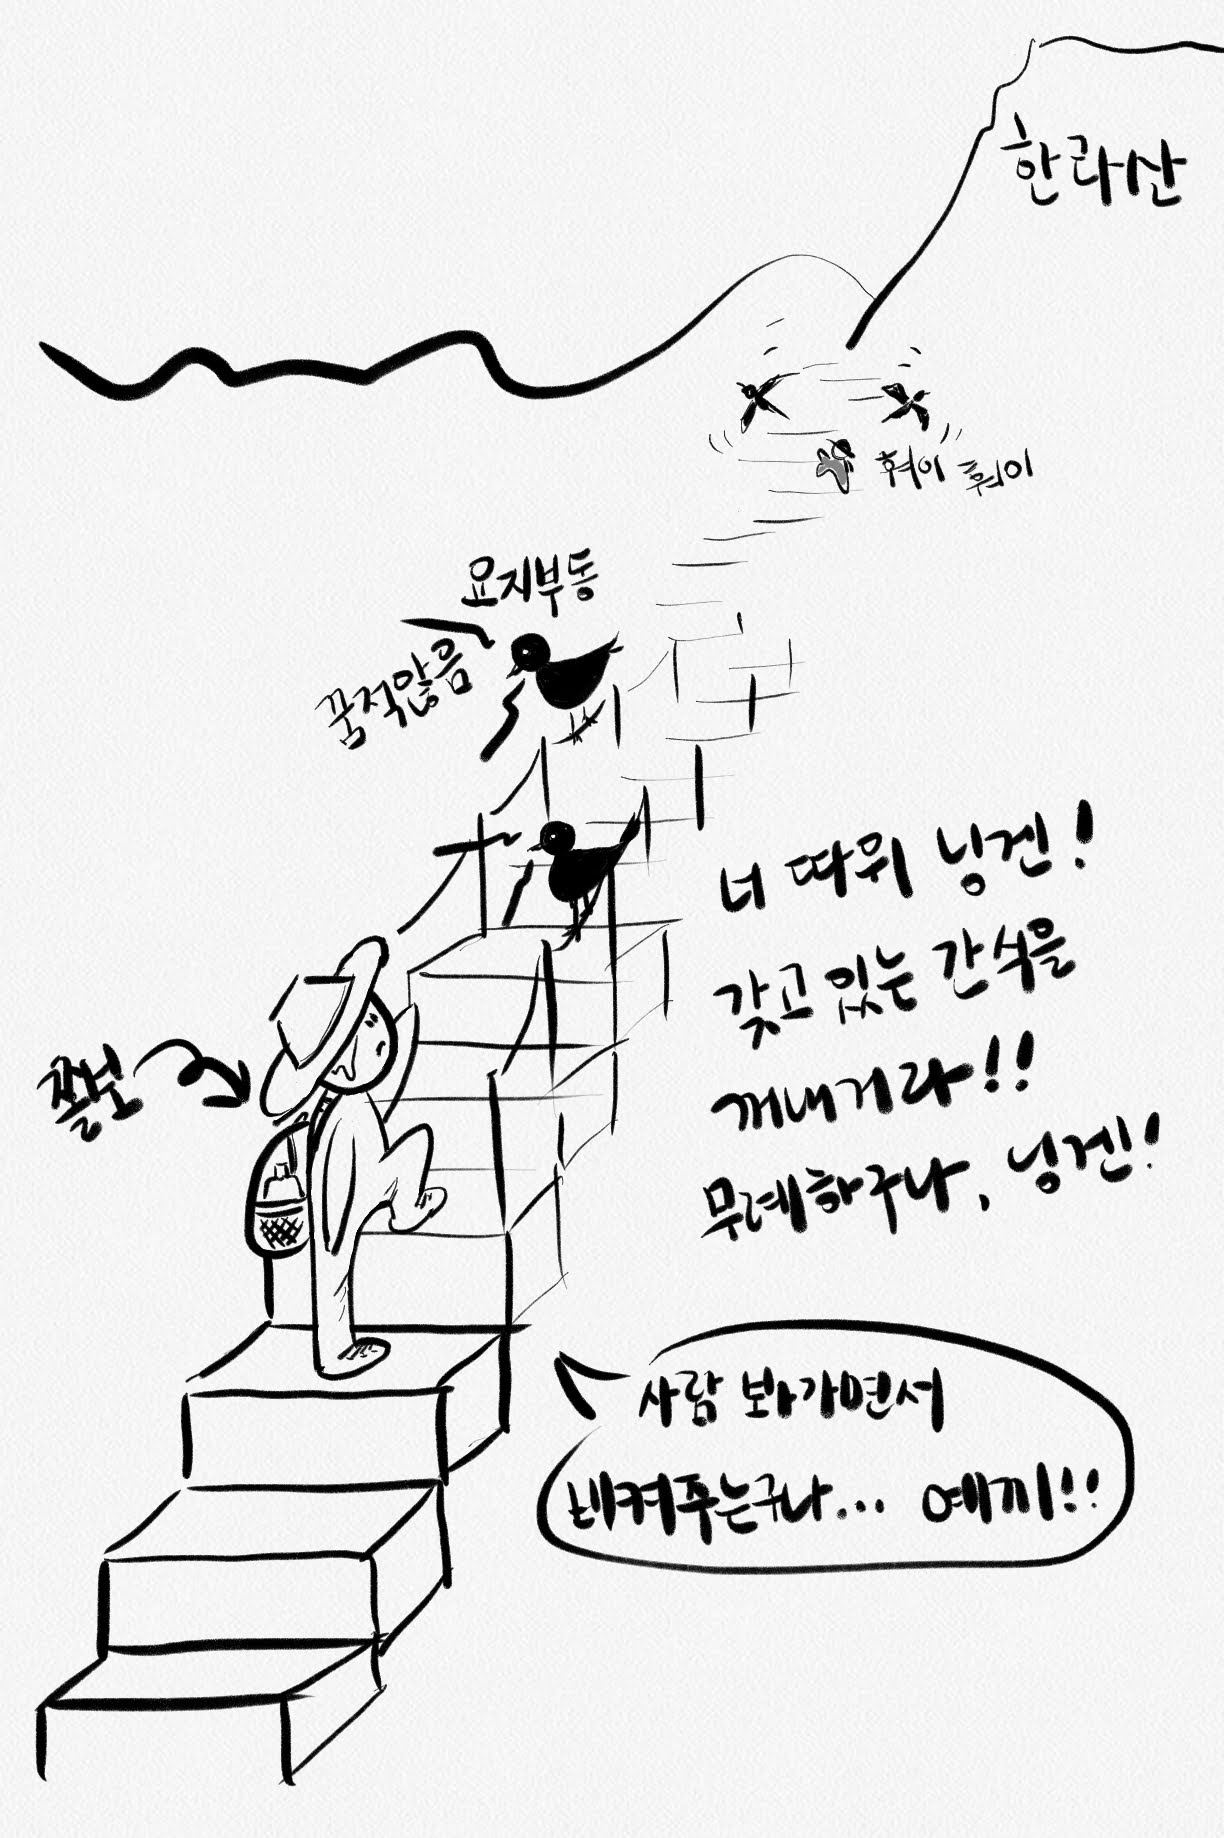 한라산
훠이 훠이
요지부동
꿈적않음
너 따위 닝겐!
갖고 있는 간식을
꺼내거라!!
무례하구나, 닝겐!
쫄보
사람 봐가면서
비켜주는구나... 예끼!!